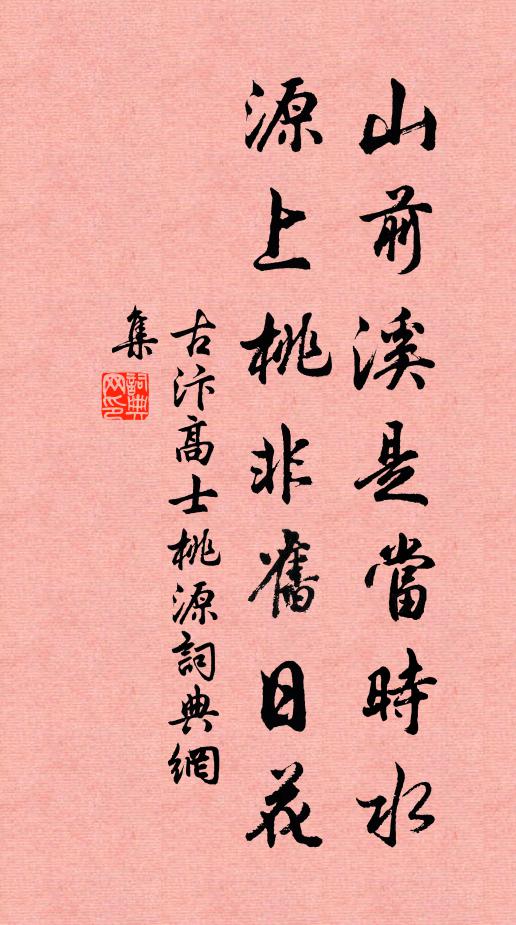 山前溪是當時水
源上桃非舊日花
古汴高士桃源詞典網
集
詞典
网印